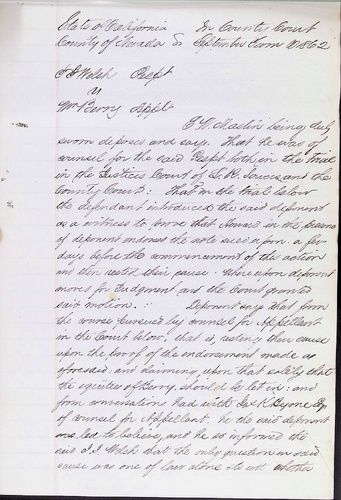 State of California In County Court
County of Nevada Ss September Term 1862
J J Welsh Respt
v
Wm Berry Applt
E. W. Maslin being duly
sworn deposes and says. That he was of
counsel for the said Respt both in the trial
in the Justices Court of and the
County Court: That on the trial below
the defendant introduced the said deponent
as a witness to prove that in the presence
of deponent endorsed the note sued upon a few
days before the commencement of this action
and then rested their cause. Whereupon deponent
moved for Judgment and the Court granted
said motion. Deponent says that from
the course pursued by counsel for Appellant
in the Court below, that is, resting their cause
upon the proof of the endorsement made as
aforesaid, and claiming upon that solely that
the equities of Berry should be let in: and
from conversation had with Jas K Byrne Esq
of counsel for Appellant, he the said deponent
was led to believe, and he so informed the
said J. J. Welsh that the only question in said
cause was one of law alone to wit whether